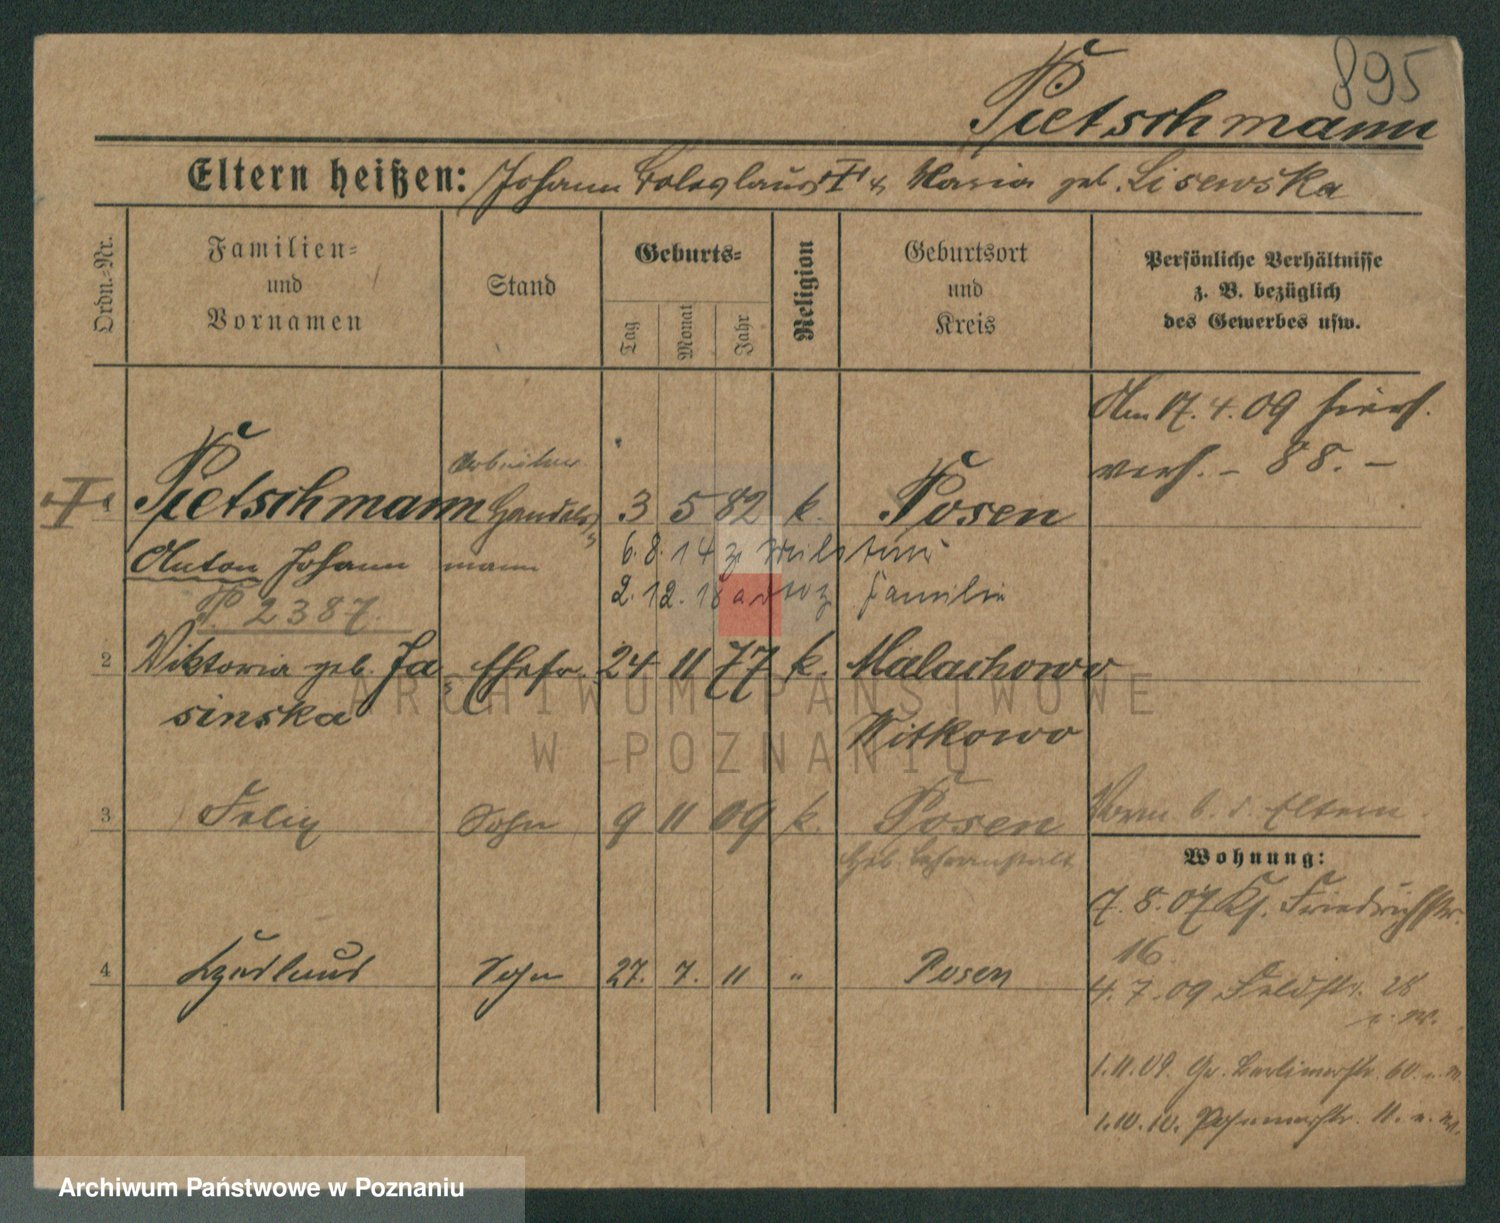 895
Pietschmann
Eltern heißen: Johann Boleslaus & Maria geb. Lisewska
Ordn.-Nr.
Familien-
und
Vornamen
Stand
Geburts-
Tag
Monat
Jahr
Religion
Geburtsort
und
Kreis
Persönliche Verhältnisse
z. B. bezüglich
des Gewerbes usw.
Am 17.4.09 hiers.
verh. – 88. –
Arbeiter
1 Pietschmann Handels- 3 5 82 k. Posen
Anton Johann mann 6.8.14 z.
P. 2387. 2.12.18 Familie
2 Viktoria geb. Ja- Ehefr. 24 11 77 k. Malachowo
sinska Witkowo
3 Felix Sohn 9 11 09 k. Posen
Vorm. b. d. Eltern.
Geb.
Wohnung:
7.8.07 Kf. Friedrichstr.
16.
4 Sohn 27. 7. 11 " Posen
4.7.09 Feldstr. 28
1.11.09. Gr. Berlinerstr. 60.
1.10.10. 11.
ARCHIWUM PAŃSTWOWE
W POZNANIU
Archiwum Państwowe w Poznaniu